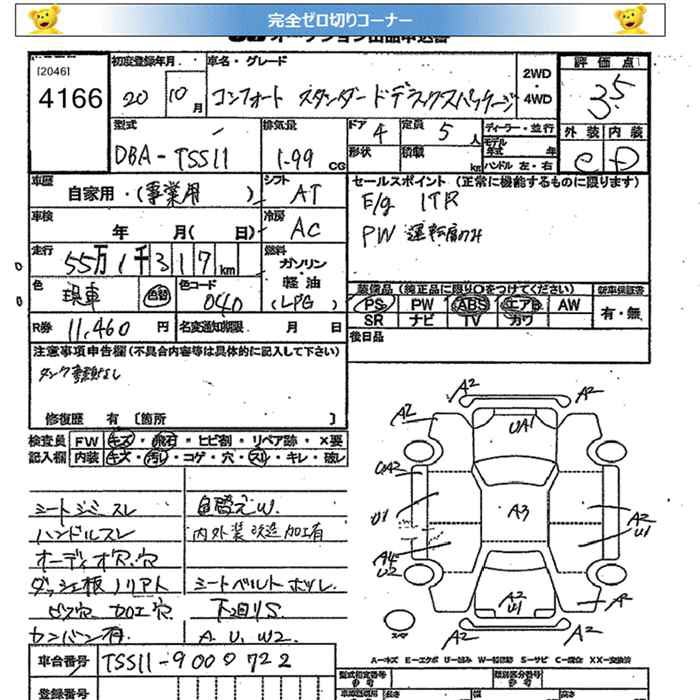 完全ゼロ切りコーナー
オークション出品申込書
[2046]
4166
初度登録年月
20 10月
車名・グレード
コンフォート スタンダードデラックスパッケージ
2WD
・
4WD
評価点
3.5
外装 内装
C D
型式
DBA-TSS11
排気量
1.99 CC
ドア 4
定員 5人
形状
積載 kg
ディーラー・並行
モデル年式 年
ハンドル 左・右
車歴
自家用・(事業用 )
シフト
AT
セールスポイント (正常に機能するものに限ります)
E/g ITR
PW 運転席のみ
車検
年 月( 日)
冷房
AC
走行
55万1千317km
燃料
ガソリン
・
軽油
(LPG)
色
現車
色替
色コード
040
装備品(純正品に限り○をつけてください)
新車保証書
PS PW ABS エアB AW
SR ナビ TV カワ
有・無
R券 11,460円
名変通知期限 月 日
後日品
注意事項申告欄(不具合内容等は具体的に記入して下さい)
タンク書類なし
修復歴 有 〔箇所 〕
検査員
記入欄
FW キズ・飛石・ヒビ割・リペア跡・×要
内装 キズ・汚れ・コゲ・穴・スレ・キレ・破レ
シートシミスレ
ハンドルスレ
オーディオ穴.穴
ダッシュ板ノリアト
ビス穴 加工穴
カンバン有.
色替え W.
内外装改造加工有
シートベルトホツレ.
下回りS
A U. W2
A2
A2
A2
UA1
UA2
U1
A3
A2
U1
A4
U2
A2
U1
A
A2
A2
スペア
A−キズ E−エクボ U−凹み W−補修跡 S−サビ C−腐食 XX−交換済
車台番号
TSS11-9000722
登録番号
型式指定番号
類別区分番号
長さ 幅 高さ